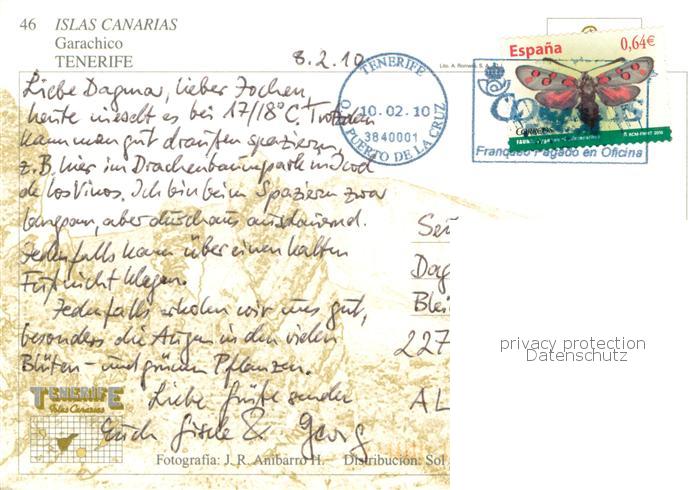 46 ISLAS CANARIAS
Garachico
TENERIFE
8.2.10
Liebe Dagmar, lieber Jochen,
heute nieselt es bei 17/18°C. Trotzdem
kann man gut draußen spazieren
z.B. hier im Drachenbaumpark in Icod
de los Vinos. Ich bin beim Spazieren zwar
langsam, aber durchaus ausdauernd.
Jedenfalls kann über einen kalten
Fuß nicht klagen.
Jedenfalls erholen wir uns gut,
besonders die Augen in den vielen
Blüten- und grünen Pflanzen.
Liebe Grüße senden
Euch Gisela & Georg
TENERIFE
10.02.10
3840001
PUERTO DE LA CRUZ
Lito. A. Romero, S. A.
España 0,64€
CORREOS
RCM-FNMT 2010
Franqueo Pagado en Oficina
Dag
Blei
227
AL
privacy protection
Datenschutz
TENERIFE
Islas Canarias
Fotografía: J. R. Anibarro H. Distribución: Sol